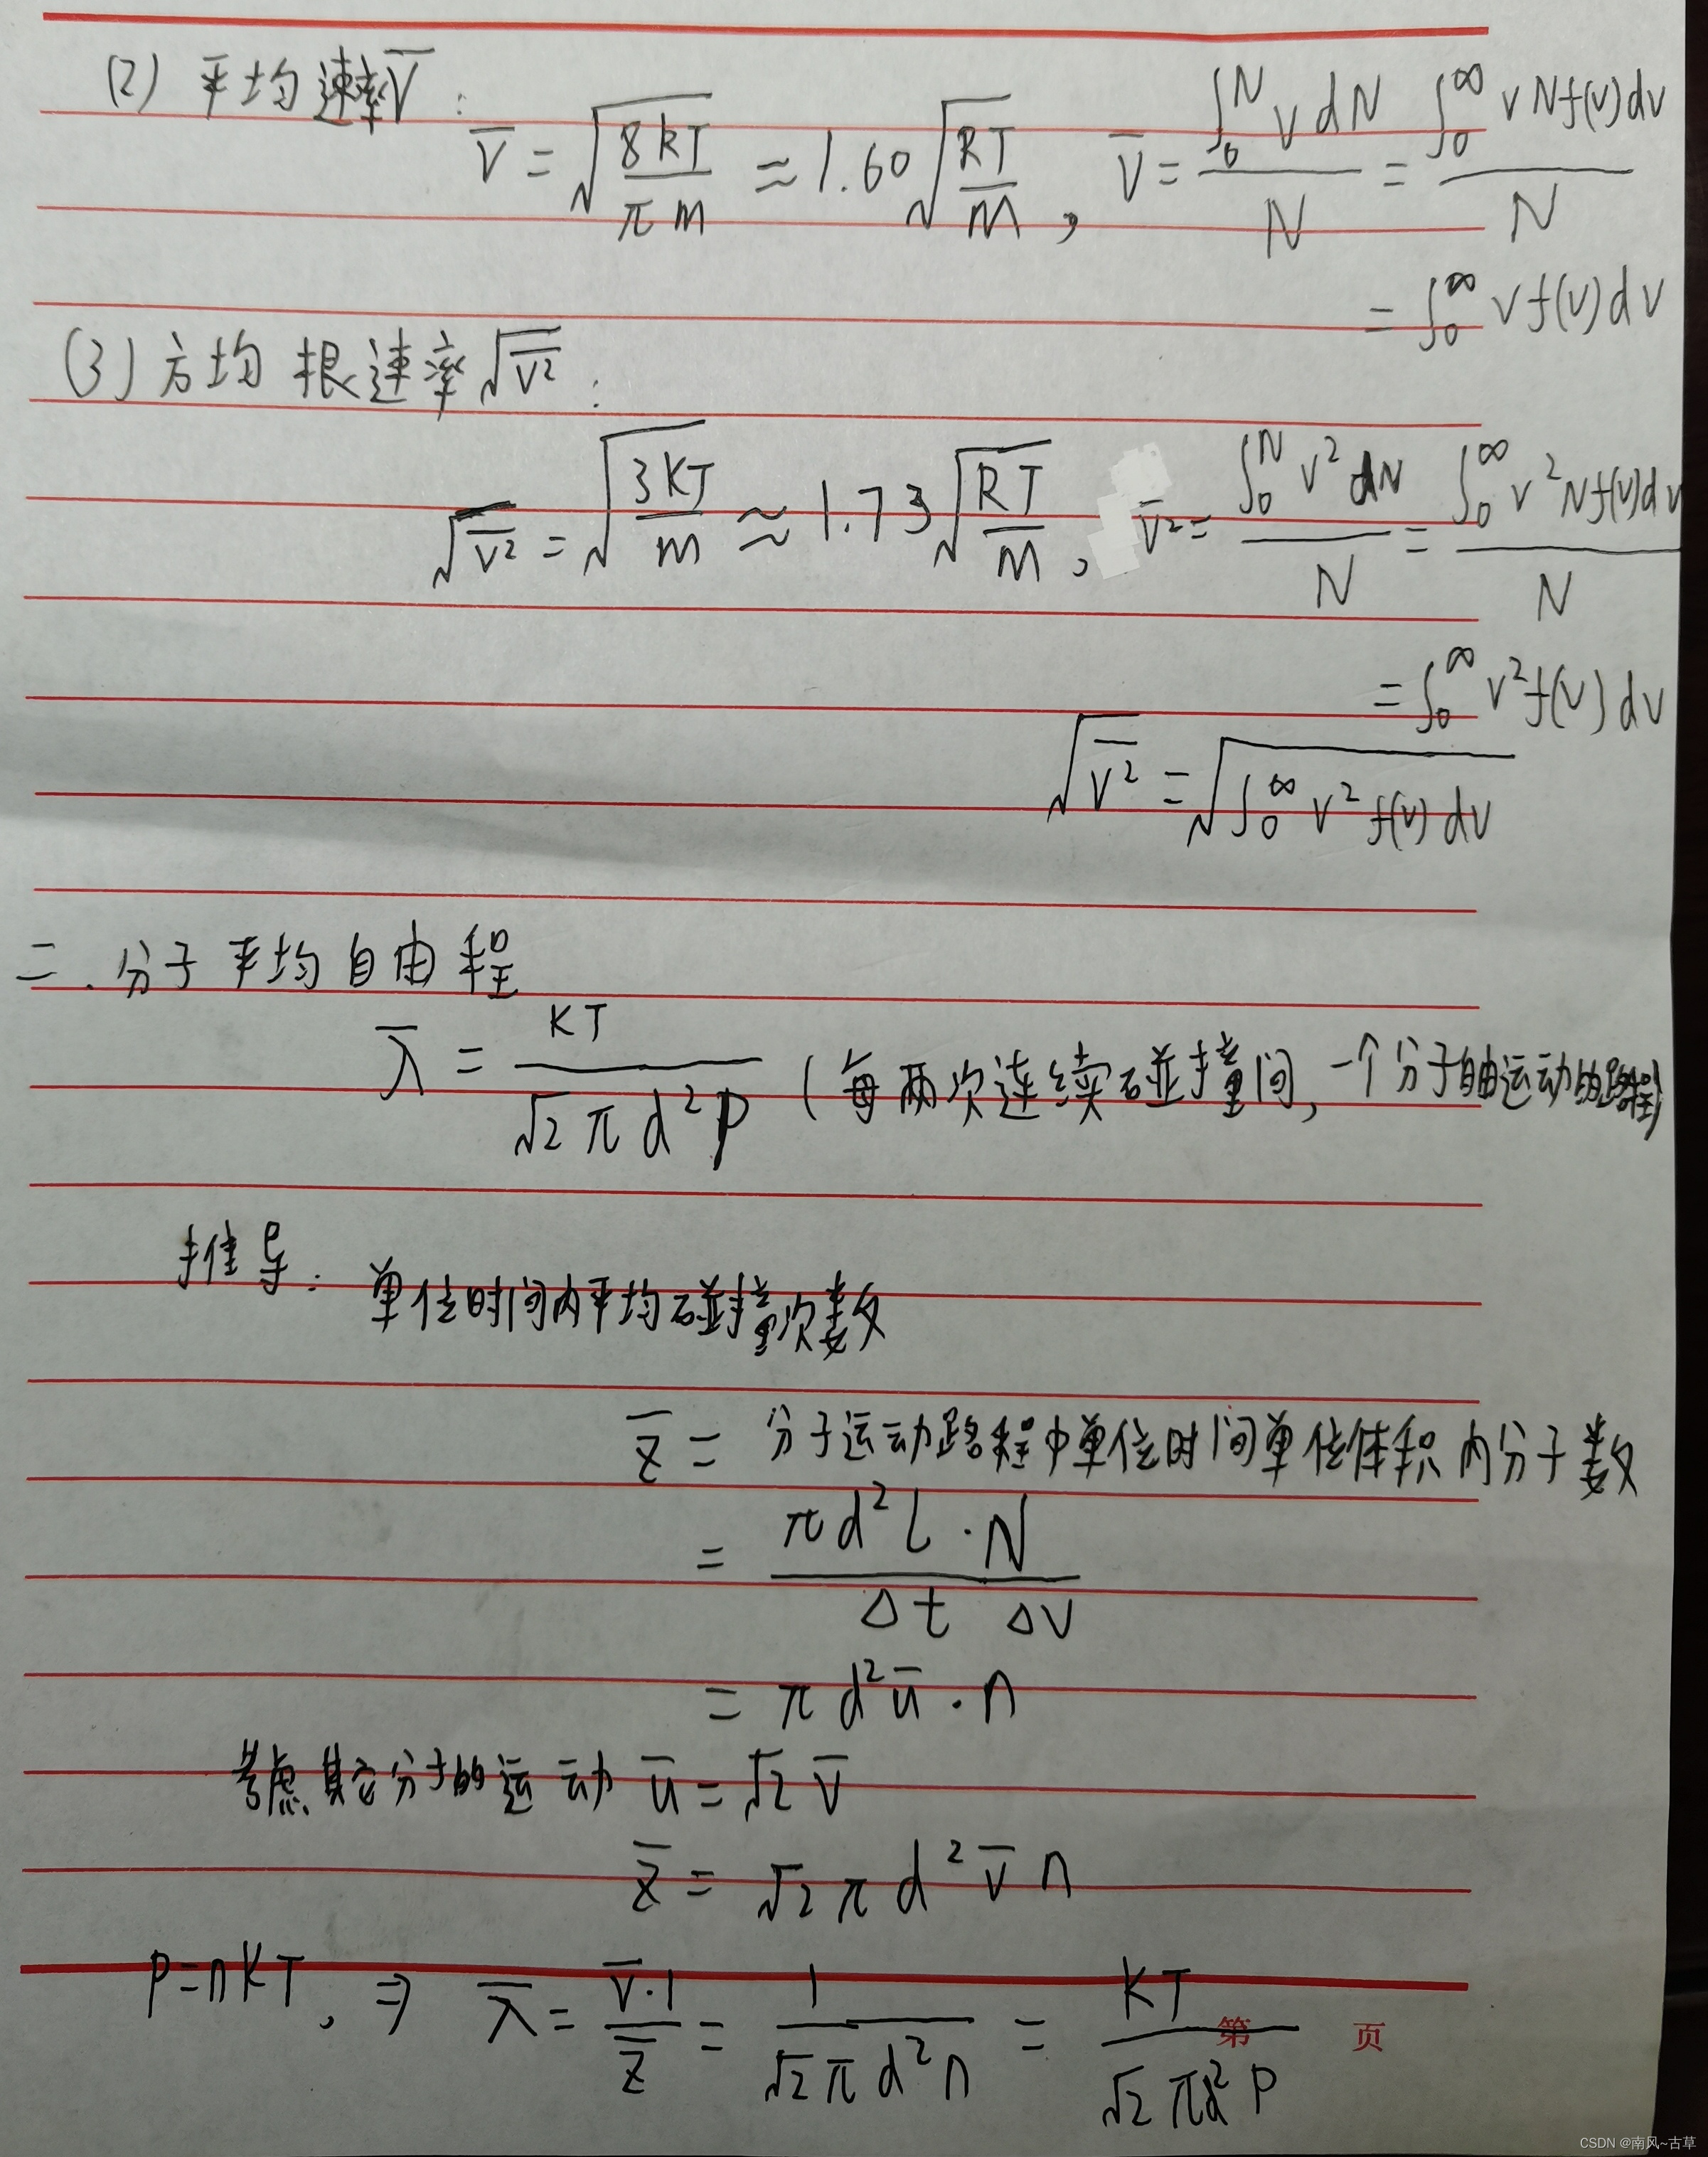 (2) 平均速率 V̄ :
V̄ = √(8kT/πm) ≈ 1.60√(RT/M) , V̄ = ∫₀ᴺ V dN / N = ∫₀^∞ V N f(V) dV / N
= ∫₀^∞ V f(V) dV
(3) 方均根速率 √(V̄²) :
√(V̄²) = √(3KT/m) ≈ 1.73√(RT/M) , V̄² = ∫₀ᴺ V² dN / N = ∫₀^∞ V² N f(V) dV / N
= ∫₀^∞ V² f(V) dV
√(V̄²) = √(∫₀^∞ V² f(V) dV)
二. 分子平均自由程
λ̄ = KT / (√2 π d² P) (每两次连续碰撞间, 一个分子自由运动的路程)
推导: 单位时间内平均碰撞次数
Z̄ = 分子运动路程中单位时间单位体积内分子数
= πd² L · N / (Δt ΔV)
= πd² ū · n
考虑其它分子的运动 ū = √2 V̄
Z̄ = √2 π d² V̄ n
P = nKT , ⇒ λ̄ = V̄·1 / Z̄ = 1 / (√2 π d² n) = KT / (√2 πd² P)
第 页
CSDN @南风~古草